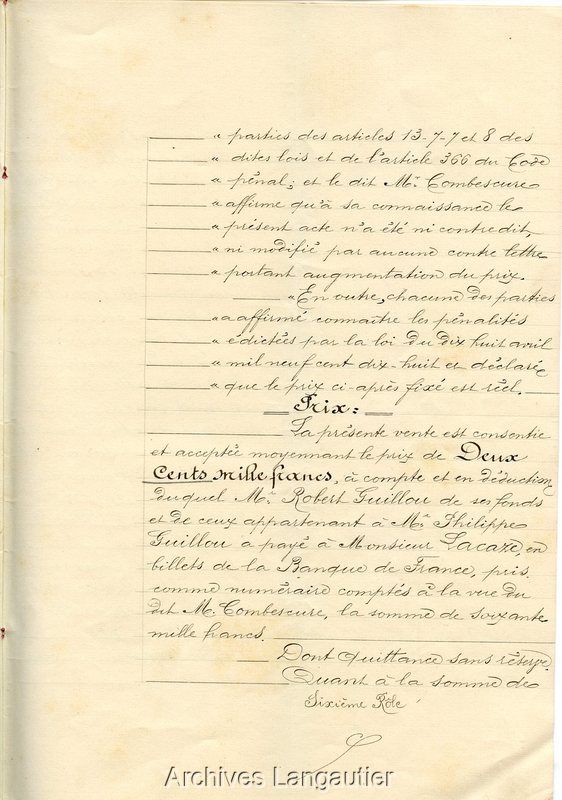 " parties des articles 13-7-7 et 8 des
" dites lois et de l'article 366 du Code
" pénal; et le dit Me Combescure
" affirme qu'à sa connaissance le
" présent acte n'a été ni contredit,
" ni modifié par aucune contre lettre
" portant augmentation du prix.
" En outre, chacune des parties
" a affirmé connaître les pénalités
" édictées par la loi du dix huit avril
" mil neuf cent dix-huit et déclarée
" que le prix ci-après fixé est réel.
Prix:
La présente vente est consentie
et acceptée moyennant le prix de Deux
Cents mille francs, à compte et en déduction
duquel Mr Robert Guillou de ses fonds
et de ceux appartenant à Mr Philippe
Guillou a payé à Monsieur Lacaze, en
billets de la Banque de France, pris
comme numéraire comptés à la vue du
dit Me Combescure, la somme de soixante
mille francs.
Dont quittance sans réserve.
Quant à la somme de
Sixième Rôle
Archives Langautier